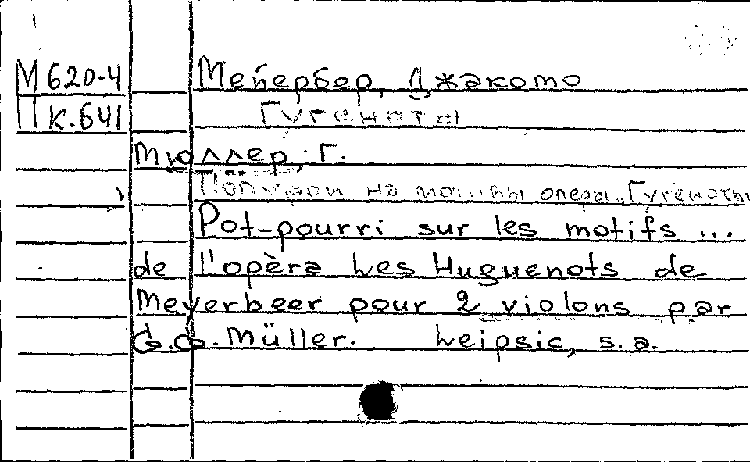 М620-4 Мейербер, Джакомо
П к.641 Гугеноты
Мюллер, Г.
Попурри на мотивы оперы „Гугеноты
Pot-pourri sur les motifs ...
de l'opèra Les Huguenots de
Meyerbeer pour 2 violons par
G.G. Müller. Leipsic, s.a.